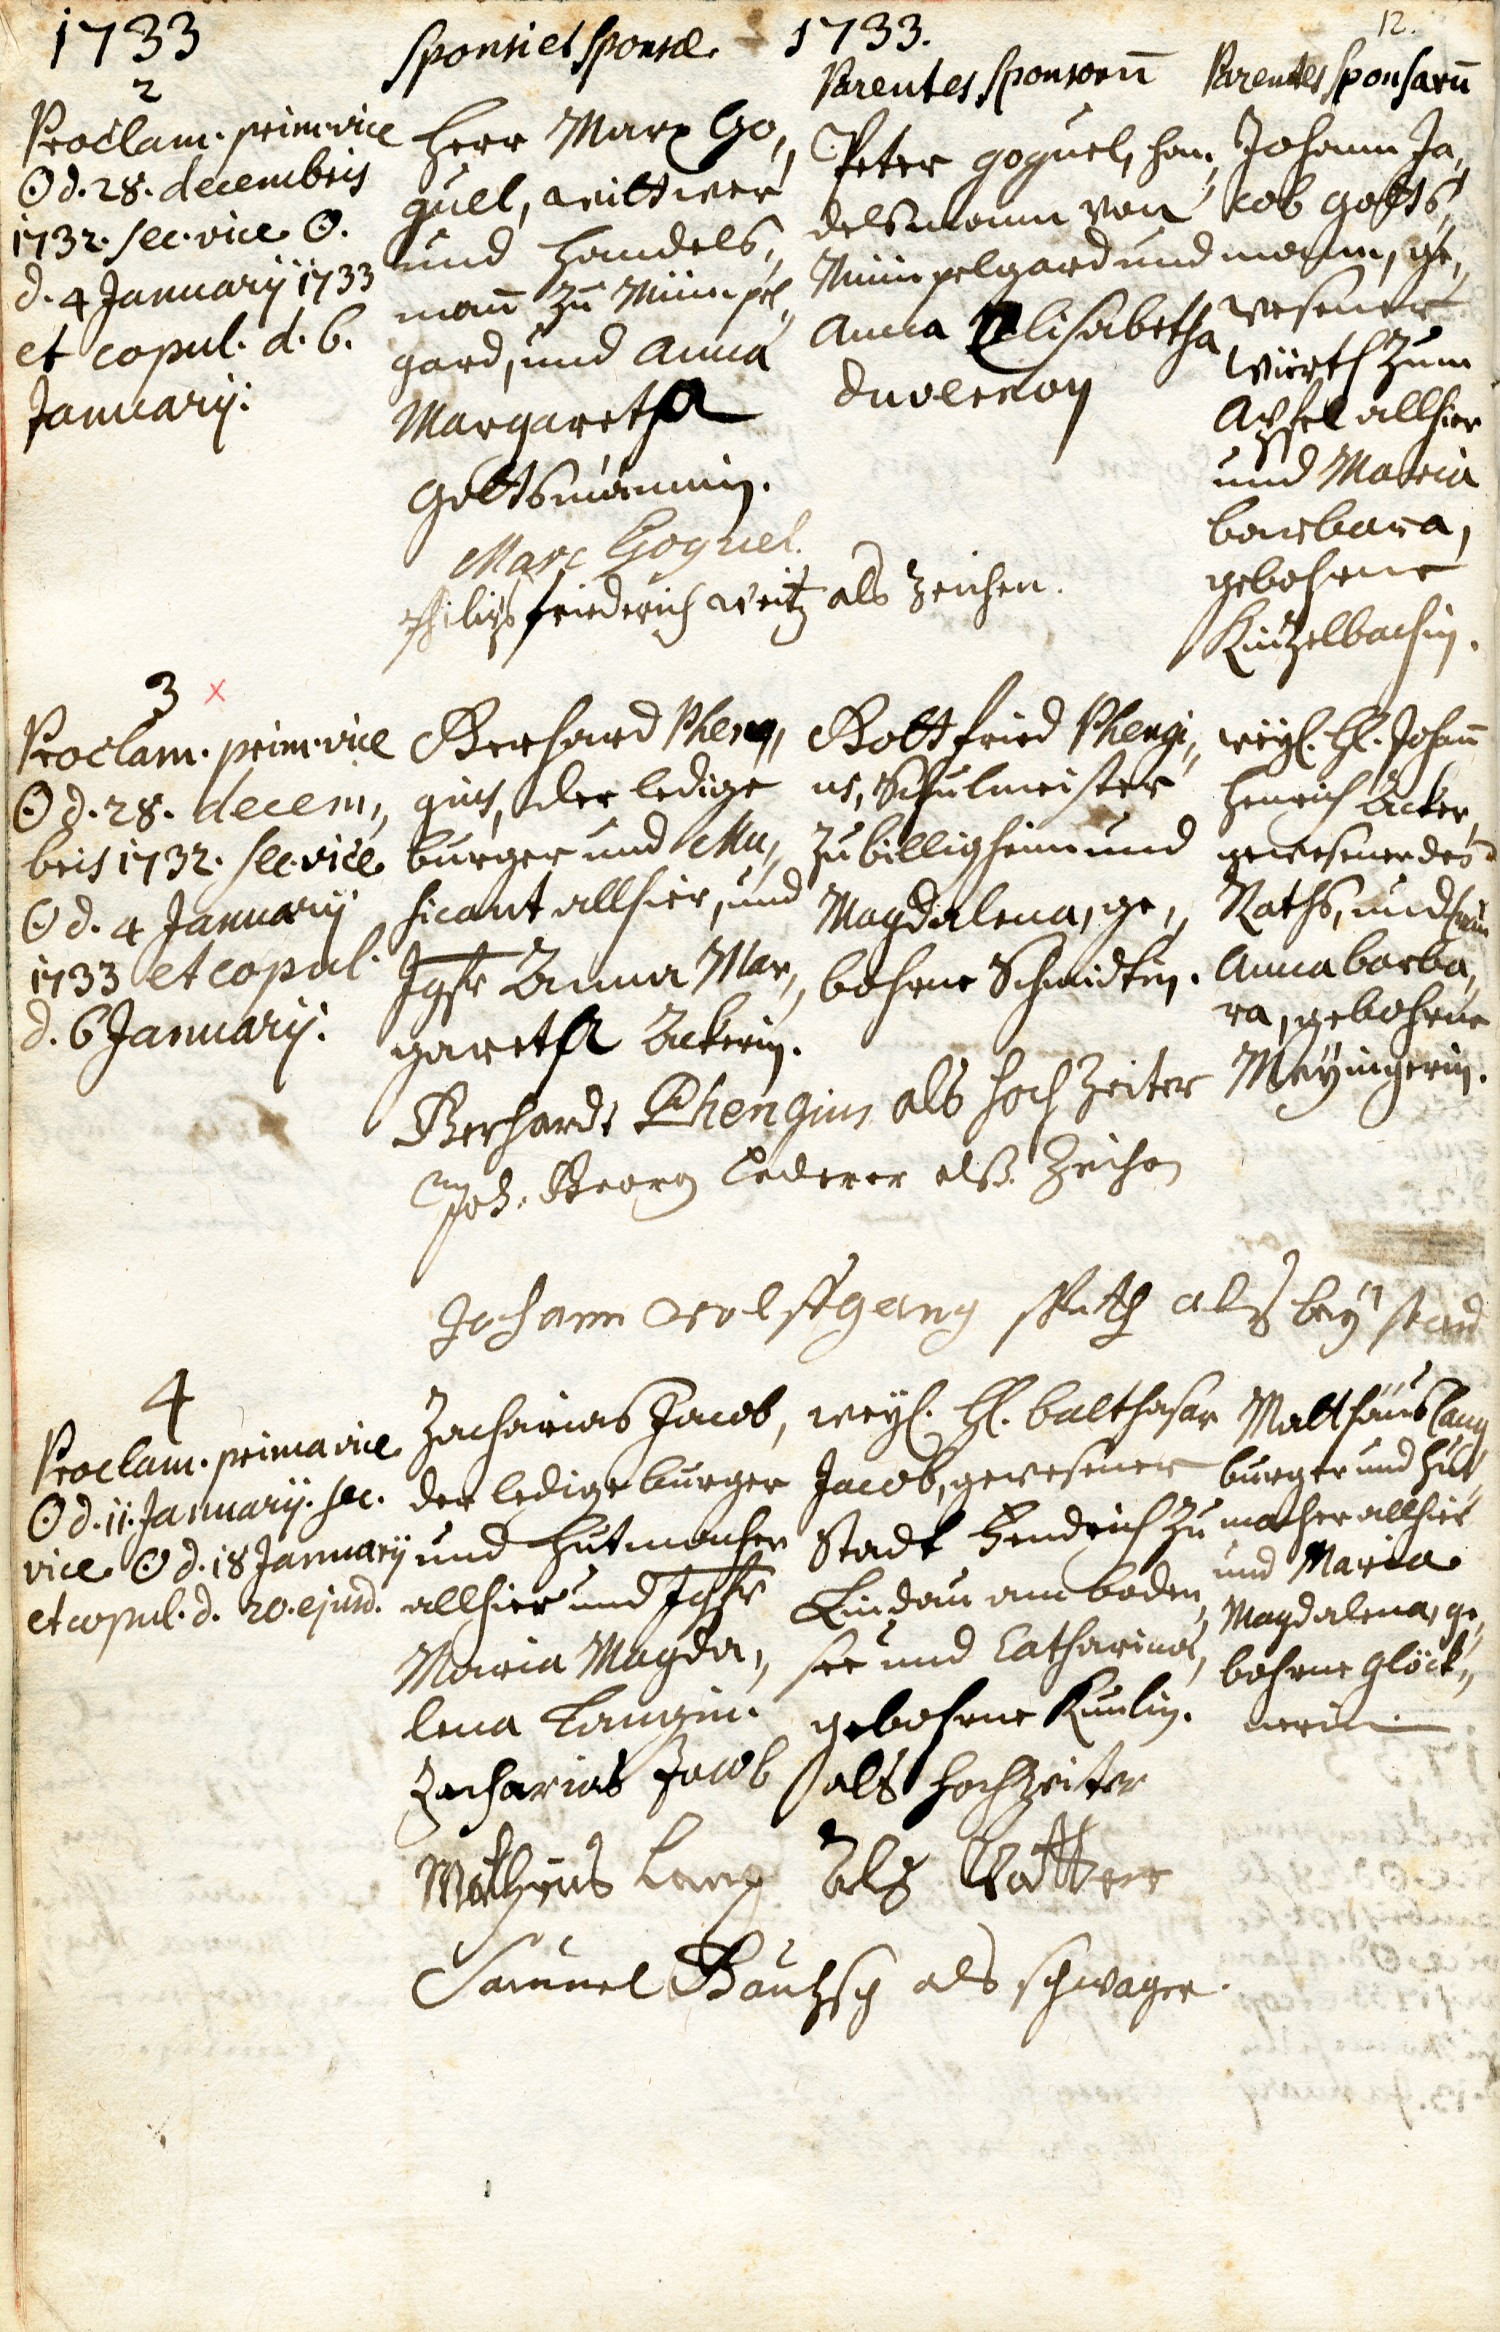 12.
1733
Sponsi et Sponsæ
1733.
Parentes Sponsorū
Parentes Sponsarū
2
Proclam. prim. vice
☉ d. 28. decembris
1732. sec. vice ☉.
d. 4 Januarÿ 1733
et copul. d. 6.
Januarÿ.
Herr Marx Go„
guel, wittwer
und Handels„
mañ zu Mümpel„
gard, und Anna
Margaretha
Goltsmännin.
Peter Goguel, han„
delsmann von
Mümpelgard und
Anna Elisabetha
duvernoy
Johann Ja„
cob Golts„
mann, ge„
wesener
Würth zum
Apfel allhier
und Maria
barbara,
gebohrne
Kintzelbachin.
Marc Goguel.
Philips friederich Weitz als Zeichen.
3 x
Proclam. prim. vice
☉ d. 28. decem„
bris 1732. sec. vice
☉ d. 4 Januarÿ
1733 et copul.
d. 6 Januarÿ.
Gerhard Phen„
gius, der ledige
burger und Mu„
sicant allhier, und
Jgfr Anna Mar„
garetha Ackerin.
Gottfried Phengi„
us, Schulmeister
zu billigheim und
Magdalena, ge„
bohrne Schmidtin.
weÿl. H. Johañ
Henrich Acker,
gewesener des
Raths, und
Anna barba„
ra, gebohrne
Meÿingerin.
Gerhardt Phengius als hoch Zeiter
Joh: Georg Lederer alß Zeichen
Johann Wolffgang Späth als beÿ stand
4
Proclam. prima vice
☉ d. 11. Januarÿ. sec.
vice ☉ d. 18 Januarÿ
et copul. d. 20. ejusd.
Zacharias Jacob,
der ledige burger
und Hutmacher
allhier und Jgfr
Maria Magda„
lena Langin.
weÿl. H. balthasar
Jacob, gewesener
Stadt Fendrich zu
Lindau am boden„
see und Catharina,
gebohrne Kunlin.
Matthäus Lang
burger und Hut„
macher allhier
und Maria
Magdalena, ge„
bohrne Glöck„
nerin.
Zacharias Jacob als hochZeiter
Mathÿus Lang als Vatter
Samuel Bautzsch als schwager.